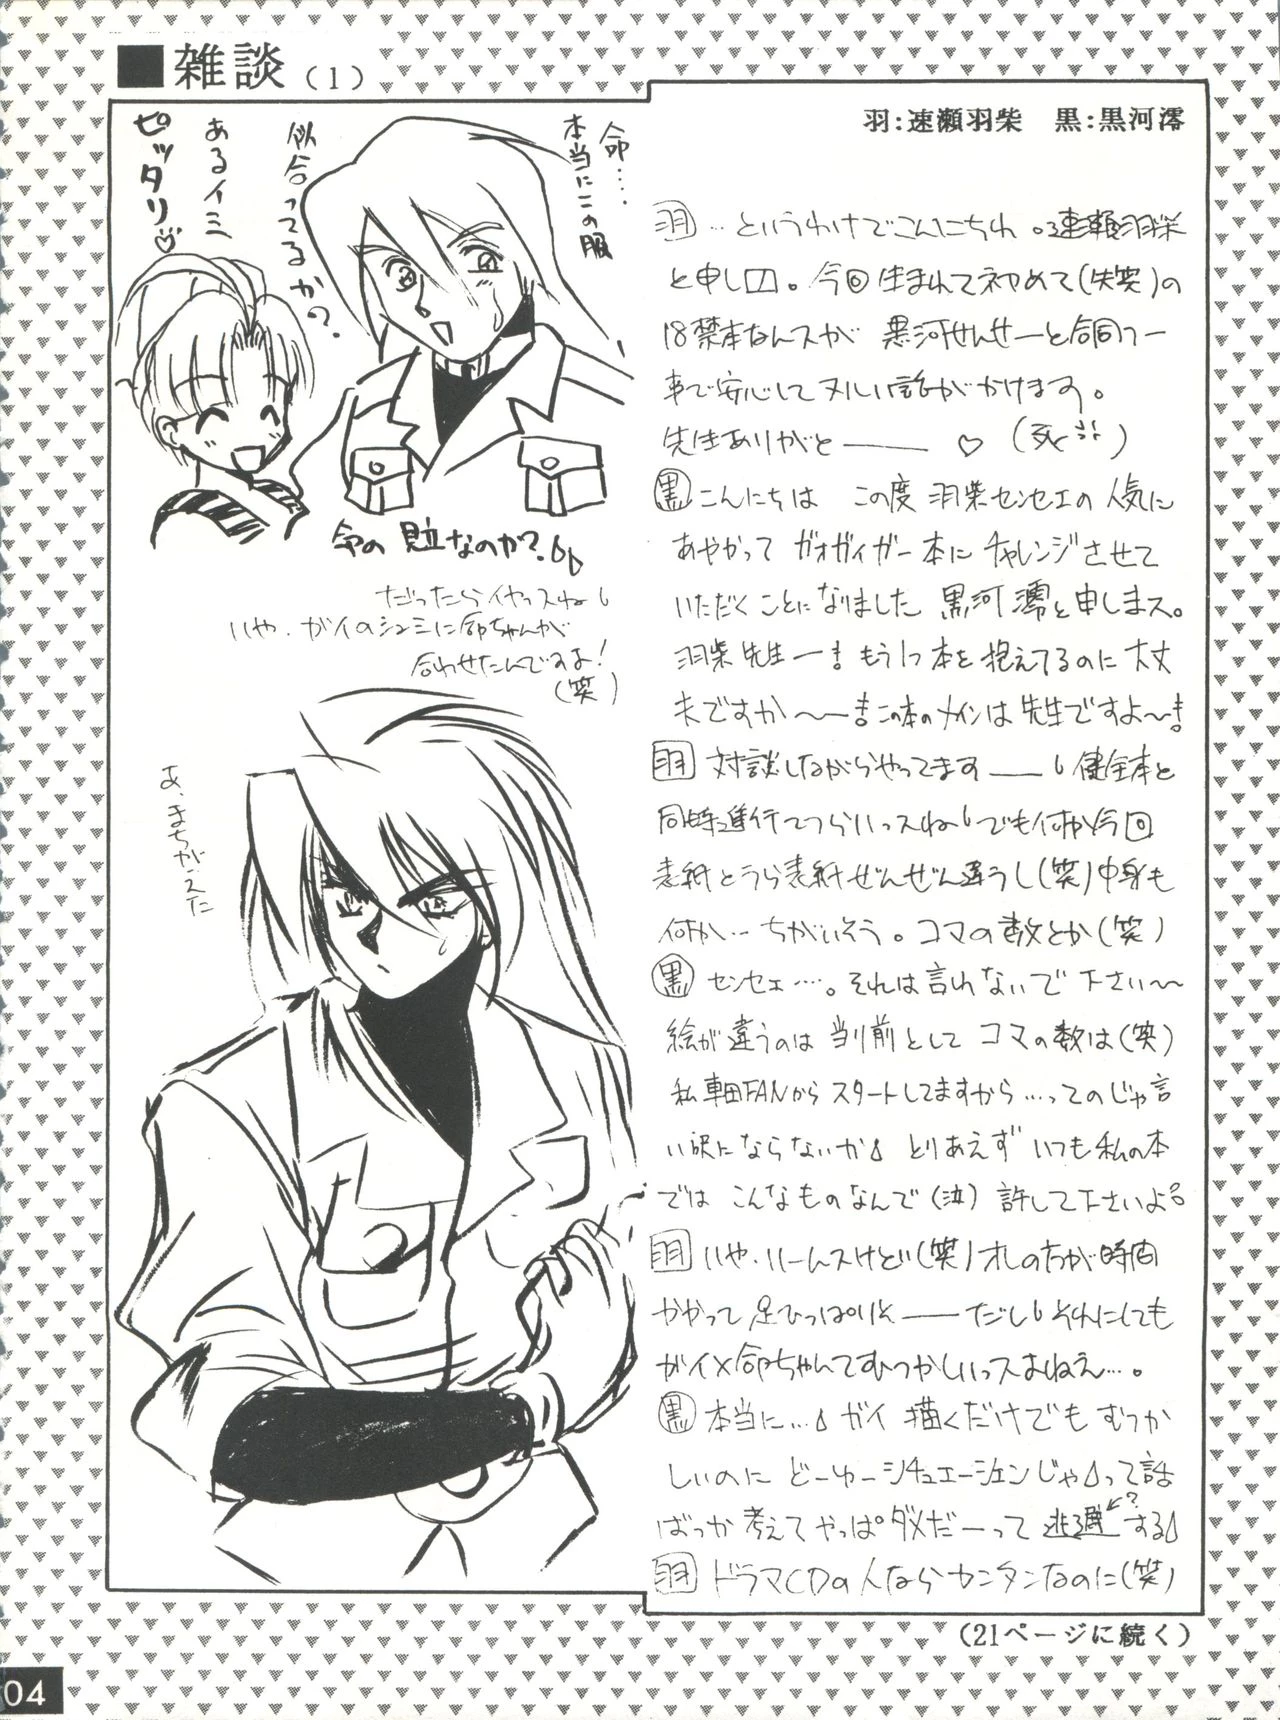 ■雑談(1)
羽:速瀬羽柴　黒:黒河澪
命……
本当にこの服
似合ってるか?
あるイミ
ピッタリ♡
命の 見立なのか?
だったらイヤっスね
いや、ガイのシュミに命ちゃんが
合わせたんですよ!
(笑)
あ、まちがえた
羽 …というわけでこんにちわ。速瀬羽柴
と申し□。今回生まれて初めて(失笑)の
18禁本なんスが 黒河せんせーと合同ワー
事で安心してヌルい話がかけます。
先生ありがと―― ♡ (死)
黒 こんにちは この度 羽柴センセエの人気に
あやかって ガオガイガー本に チャレンジさせて
いただくことになりました 黒河澪と申しまス。
羽柴先生ー! もう1つ本を抱えてるのに大丈
夫ですか〜ー! この本のメインは先生ですよ〜!
羽 対談しながらやってます―― 健全本と
同時進行でつらいっスね でも何か今回
表紙とうら表紙ぜんぜん違うし(笑)中身も
何か…ちがいそう。コマの数とか(笑)
黒 センセェ…。それは言わないで下さい〜
絵が違うのは 当り前として コマの数は(笑)
私 車田FANから スタートしてますから…ってのじゃ言
い訳にならないか とりあえず いつも私の本
では こんなものなんで(泣) 許して下さいよ
羽 いや、いーんスけど(笑)オレの方が時間
かかって足ひっぱりそ――だし それにしても
ガイ×命ちゃんてむつかしいっスよねえ…。
黒 本当に… ガイ 描くだけでも むつか
しいのに どーゆーシチュエーションじゃって話
ばっか 考えて やっぱダメだーって 逃避する
?
羽 ドラマCDの人ならカンタンなのに(笑)
(21ページに続く)
04